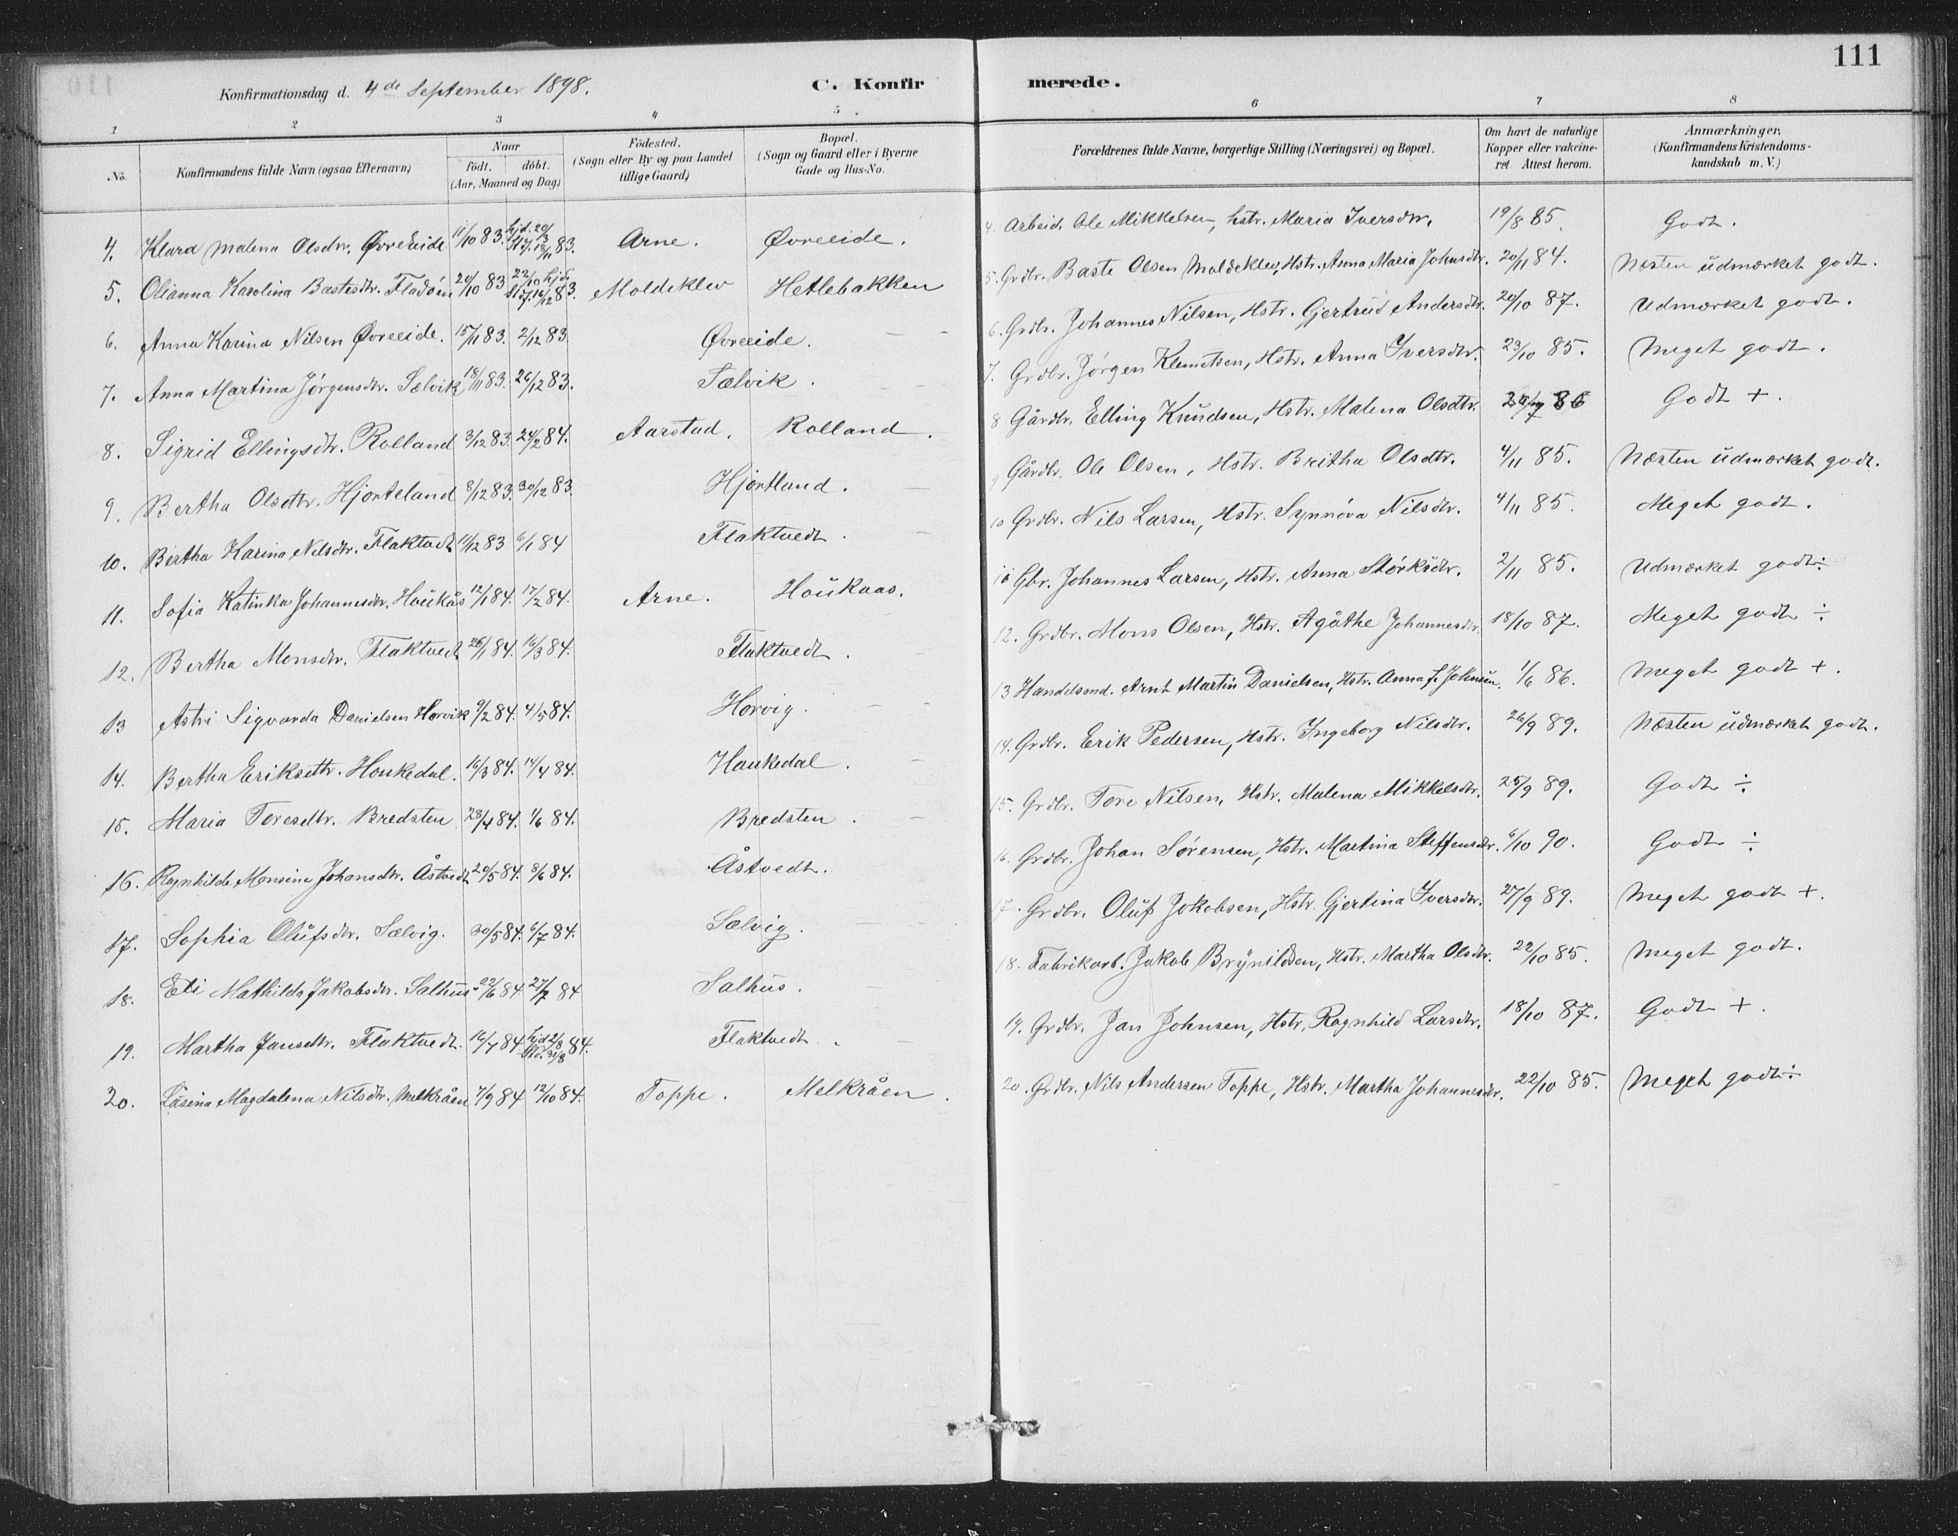 111
Konfirmationsdag d. 4de September 1898.
C. Konfirmerede.
1 2 3 4 5 6 7 8
No.
Konfirmandens fulde Navn (ogsaa Efternavn)
Naar
födt. döbt.
(Aar, Maaned og Dag)
Födested.
(Sogn eller By og paa Landet tillige Gaard)
Bopæl.
(Sogn og Gaard eller i Byerne Gade og Hus-No.
Forældrenes fulde Navne, borgerlige Stilling (Næringsvei) og Bopæl.
Om havt de naturlige Kopper eller vakcineret Attest herom.
Anmærkninger,
(Konfirmandens Kristendomskundskab m. V.)
4. Klara Malena Olsdtr. Øvreeide 11/10 83. Arne. Øvreeide. 4. Arbeid. Ole Mikkelsen, hstr. Maria Iversdtr. 19/8 85. Godt.
5. Olianna Karolina Bastesdtr. Fladøen 20/10 83 Moldeklev Hetlebakken 5. Grdbr. Baste Olsen Moldeklev, Hstr. Anna Maria Johnsdtr. 20/11 84. Næsten udmærket godt.
6. Anna Karina Nilsen Øvreeide. 15/11 83. 2/12 83. Øvreeide. 6. Grdbr. Johannes Nilsen, Hstr. Gjertrud Andersdtr. 20/10 87. Udmærket godt.
7. Anna Martina Jørgensdtr. Sælvik 18/11 83. 26/12 83. Sælvik. 7. Grdbr. Jørgen Klemetsen, Hstr. Anna Iversdtr. 23/10 85. Meget godt.
8. Sigrid Ellingsdtr. Rolland 3/12 83. 24/2 84. Aarstad. Rolland. 8 Gårdbr. Elling Knudsen, Hstr. Malena Olsdtr. Godt +.
9. Bertha Olsdtr. Hjorteland 8/12 83. 30/12 83. Hjortland. 9 Gårdbr. Ole Olsen, Hstr. Britha Olsdtr. 4/11 85. Næsten udmærket godt.
10. Bertha Karina Nilsdtr. Flaktvedt 11/12 83 6/1 84 Flaktvedt. 10 Grdbr. Nils Larsen, Hstr. Synnøva Nilsdtr. 4/11 85. Meget godt.
11. Sofia Katinka Johannesdtr. Houkås 12/1 84. 17/2 84. Arne. Houkaas. Gbr. Johannes Larsen, Hstr. Anna Størksdtr. 2/11 85. Udmærket godt ÷
12. Bertha Monsdtr. Flaktvedt 26/1 84. 16/3 84. Flaktvedt. 12. Grdbr. Mons Olsen, Hstr. Agåthe Johannesdtr. 18/10 87. Meget godt ÷
13 Astri Sigvarda Danielsen Horvik 9/2 84. 4/5 84. Horvig. 13 Handelsmd. Arnt Martin Danielsen, Hstr. Anna f. Johnsen. 1/6 86. Meget godt +.
14. Bertha Eriksdtr. Houkedal. 16/3 84. 14/4 84. Haukedal. 14. Grdbr. Erik Pedersen, Hstr. Ingeborg Nilsdtr. 26/9 89. Næsten udmærket godt.
15. Maria Toresdtr. Bredsten 23/4 84. 1/6 84. Bredsten. 15. Grdbr. Tore Nilsen, Hstr. Malena Mikkelsdtr. 25/9 89. Godt ÷
16. Ragnhilde Monsine Johansdtr. Åstvedt 20/5 84. 8/6 84. Åstvedt. 16. Grdbr. Johan Sørensen, Hstr. Martina Steffensdtr. 6/10 90. Godt ÷
17. Sophia Olufsdtr. Sælvig. 30/5 84. 6/7 84. Sælvig. 17. Grdbr. Oluf Jakobsen, Hstr. Gjertina Iversdtr. 27/9 89. Meget godt +.
18. Eli Mathilda Jakobsdtr. Salhus 22/6 84 27/7 84 Salhus. 18. Fabrikarb. Jakob Brynildsen, Hstr. Martha Olsdtr. 22/10 85. Meget godt.
19. Martha Jansdtr. Flaktvedt. 16/7 84 Flaktvedt. 19. Grdbr. Jan Johnsen, Hstr. Ragnhild Larsdtr. 18/10 87. Godt +.
20. Lasina Magdalena Nilsdtr. Melkråen 7/9 84 12/10 84. Toppe. Melkråen. 20. Grdbr. Nils Andersen Toppe, Hstr. Martha Johannesdtr. 22/10 85. Meget godt ÷